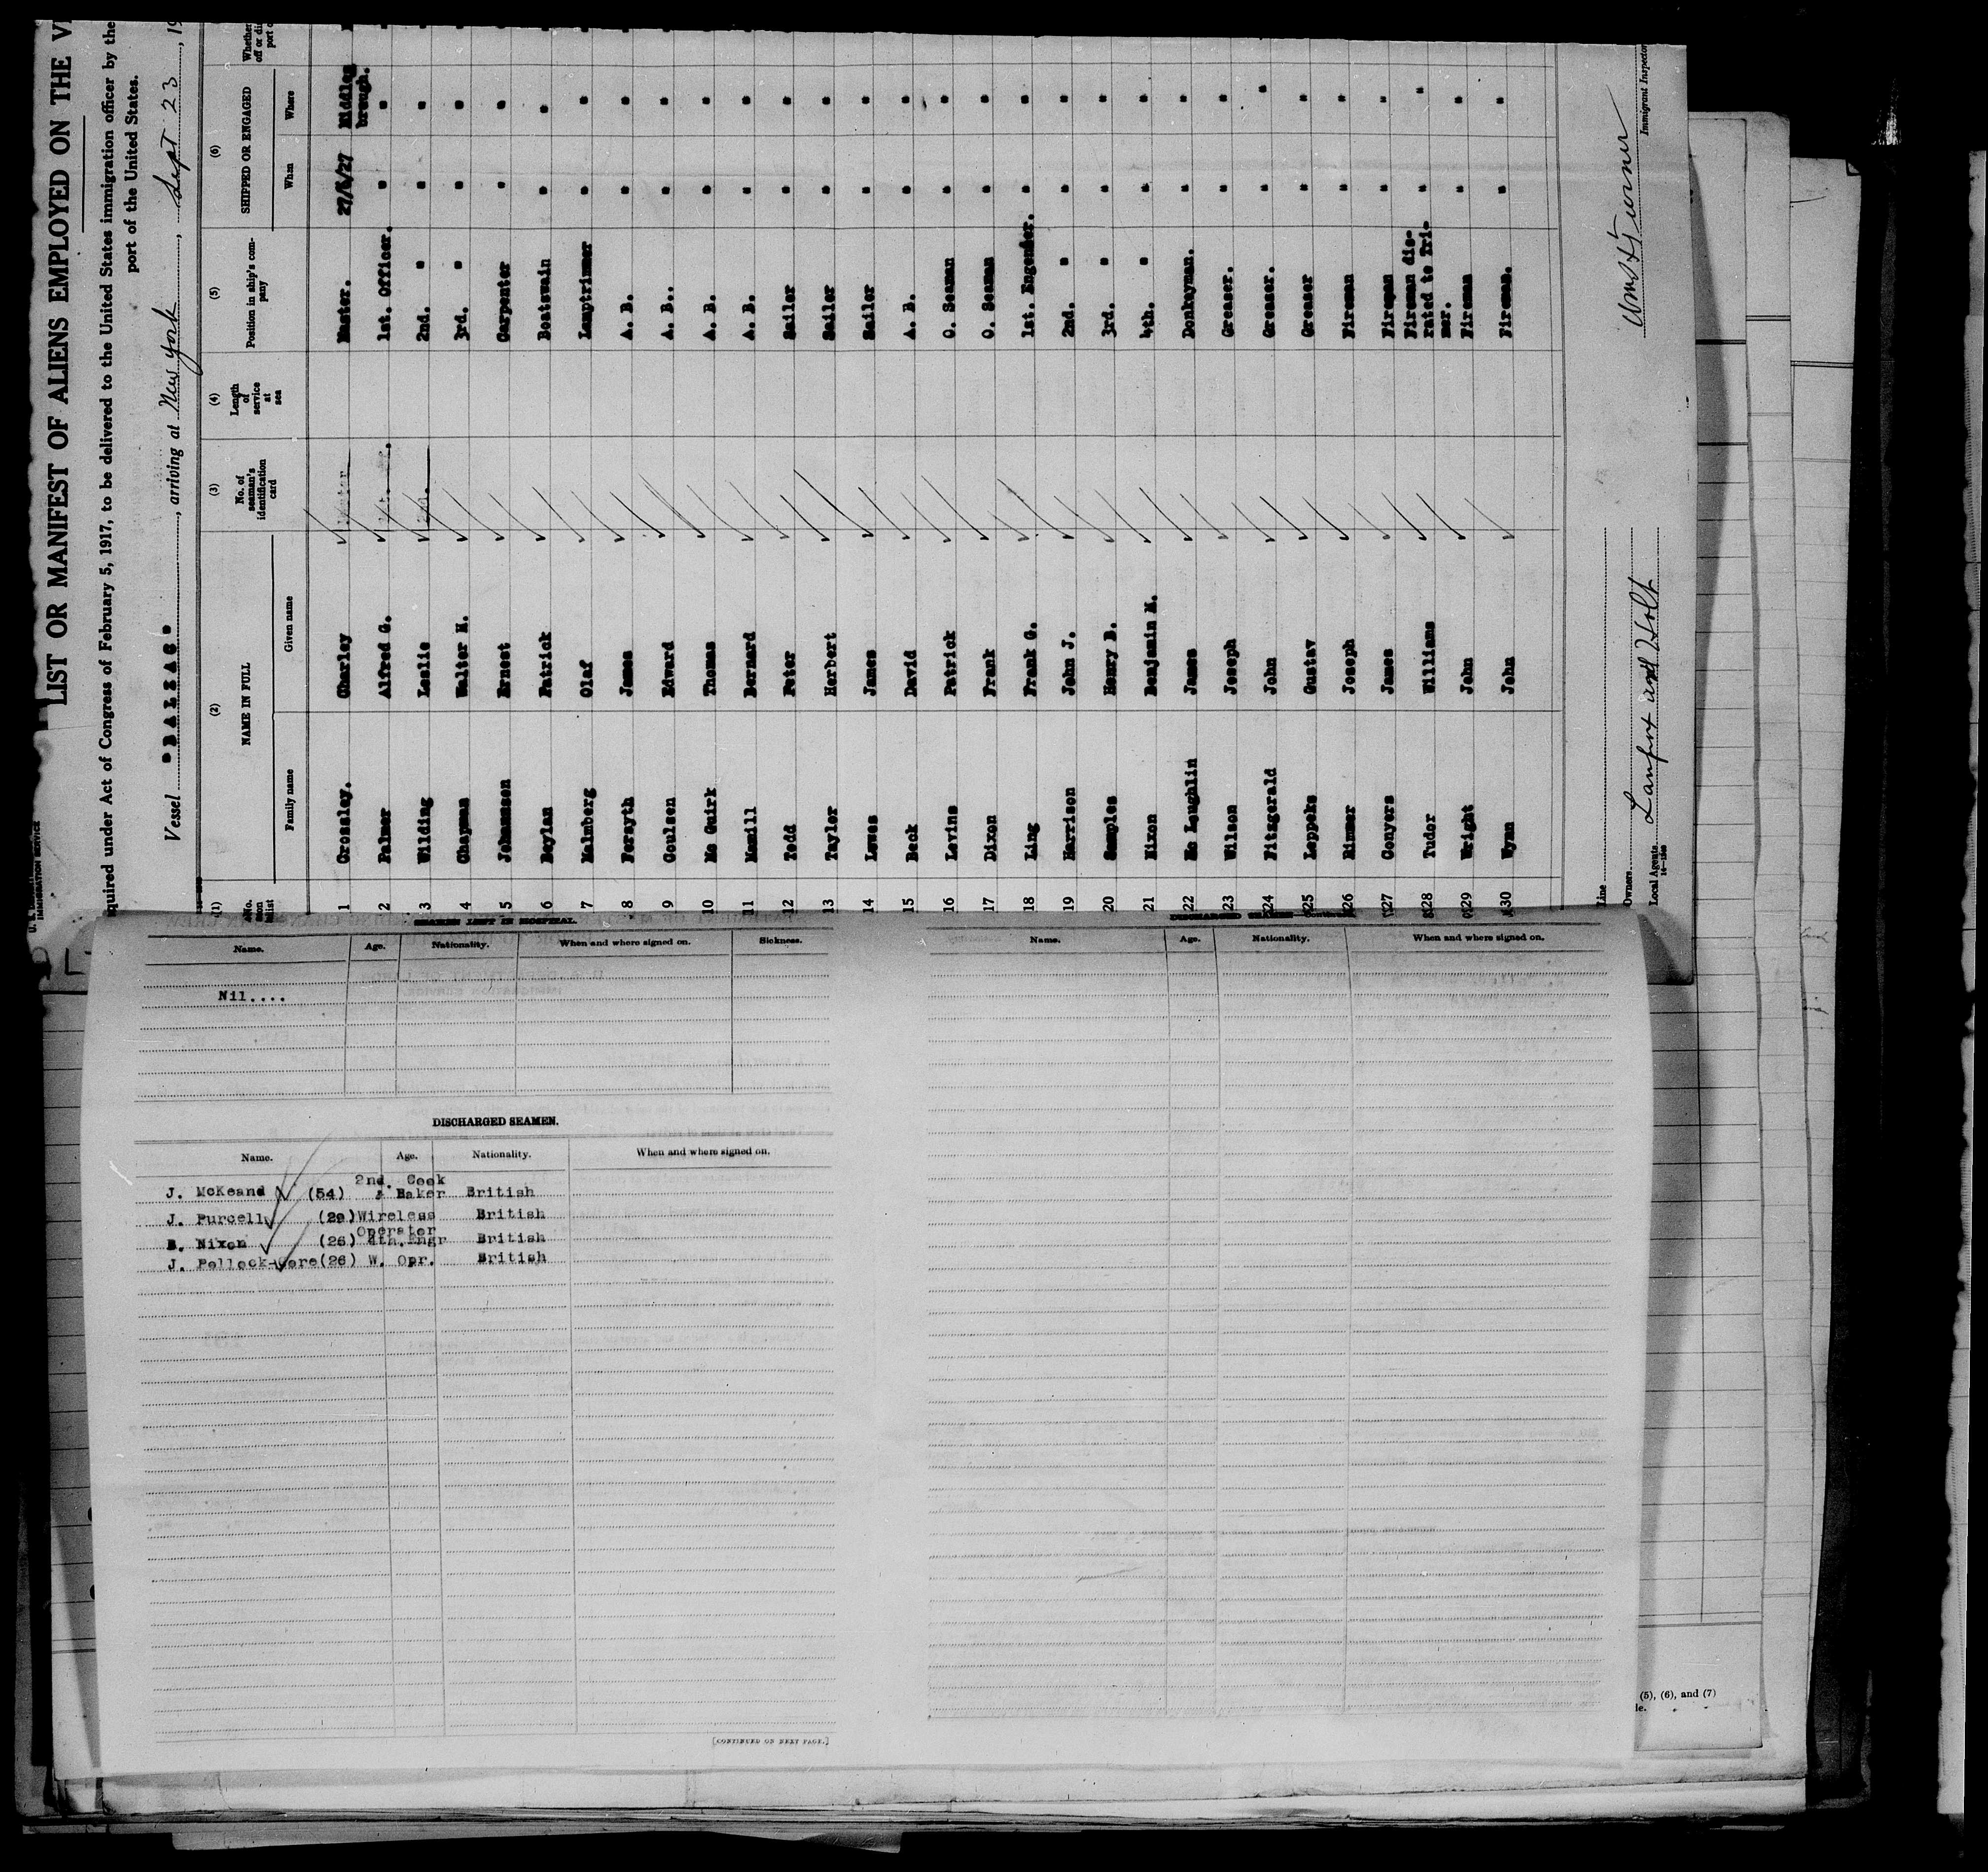 LIST OR MANIFEST OF ALIENS EMPLOYED ON THE
quired under Act of Congress of February 5, 1917, to be delivered to the United States immigration officer by the
port of the United States.
Vessel "BALZAC", arriving at New York, Sept 23, 19
IMMIGRATION SERVICE
(1) (2) (3) (4) (5) (6)
No. NAME IN FULL No. of seaman's identification card Length of service at sea Position in ship's company SHIPPED OR ENGAGED
list Family name Given name When Where
1 Crossley. Charley Master. 27/6/27 Middlesbrough.
2 Palmer Alfred G. 1st. Officer. " "
3 Wilding Leslie 2nd. " " "
4 Chapman Walter H. 3rd. " " "
5 Johannsen Ernest Carpenter " "
6 Boylan Patrick Boatswain " "
7 Malmberg Olaf Lamptrimmer " "
8 Forsyth James A. B. " "
9 Coulsen Edward A. B.. " "
10 Mc Guirk Thomas A. B. " "
11 Mamill Bernard A. B. " "
12 Todd Peter Sailor " "
13 Taylor Herbert Sailor " "
14 Lowes James Sailor " "
15 Beck David A. B. " "
16 Levins Patrick O. Seaman " "
17 Dixon Frank O. Seaman " "
18 Ling Frank G. 1st. Engender. " "
19 Harrison John J. 2nd. " " "
20 Samples Henry B. 3rd. " " "
21 Nixon Benjamin M. 4th. " " "
22 Mc Loughlin James Donkeyman. " "
23 Wilson Joseph Greaser. " "
24 Fitzgerald John Greaser. " "
25 Leppeks Gustav Greaser " "
26 Rimmer Joseph Fireman " "
27 Conyers James Fireman " "
28 Tudor Williams Fireman dis-rated to Tri-mer. " "
29 Wright John Fireman " "
30 Wynn John Fireman. " "
Line
Owners
Local Agents Lamport and Holt
Immigrant Inspector
SEAMEN LEFT IN HOSPITAL.
Name. Age. Nationality. When and where signed on. Sickness.
Nil....
DISCHARGED SEAMEN.
Name. Age. Nationality. When and where signed on.
J. McKeand (54) 2nd. Cook & Baker British
J. Purcell (29) Wireless Operator British
B. Nixon (26) 4th. Engr British
J. Pollock-Gore (26) W. Opr. British
[CONTINUED ON NEXT PAGE.]
DISCHARGED SEAMEN—Continued
Name. Age. Nationality. When and where signed on.
(5), (6), and (7)